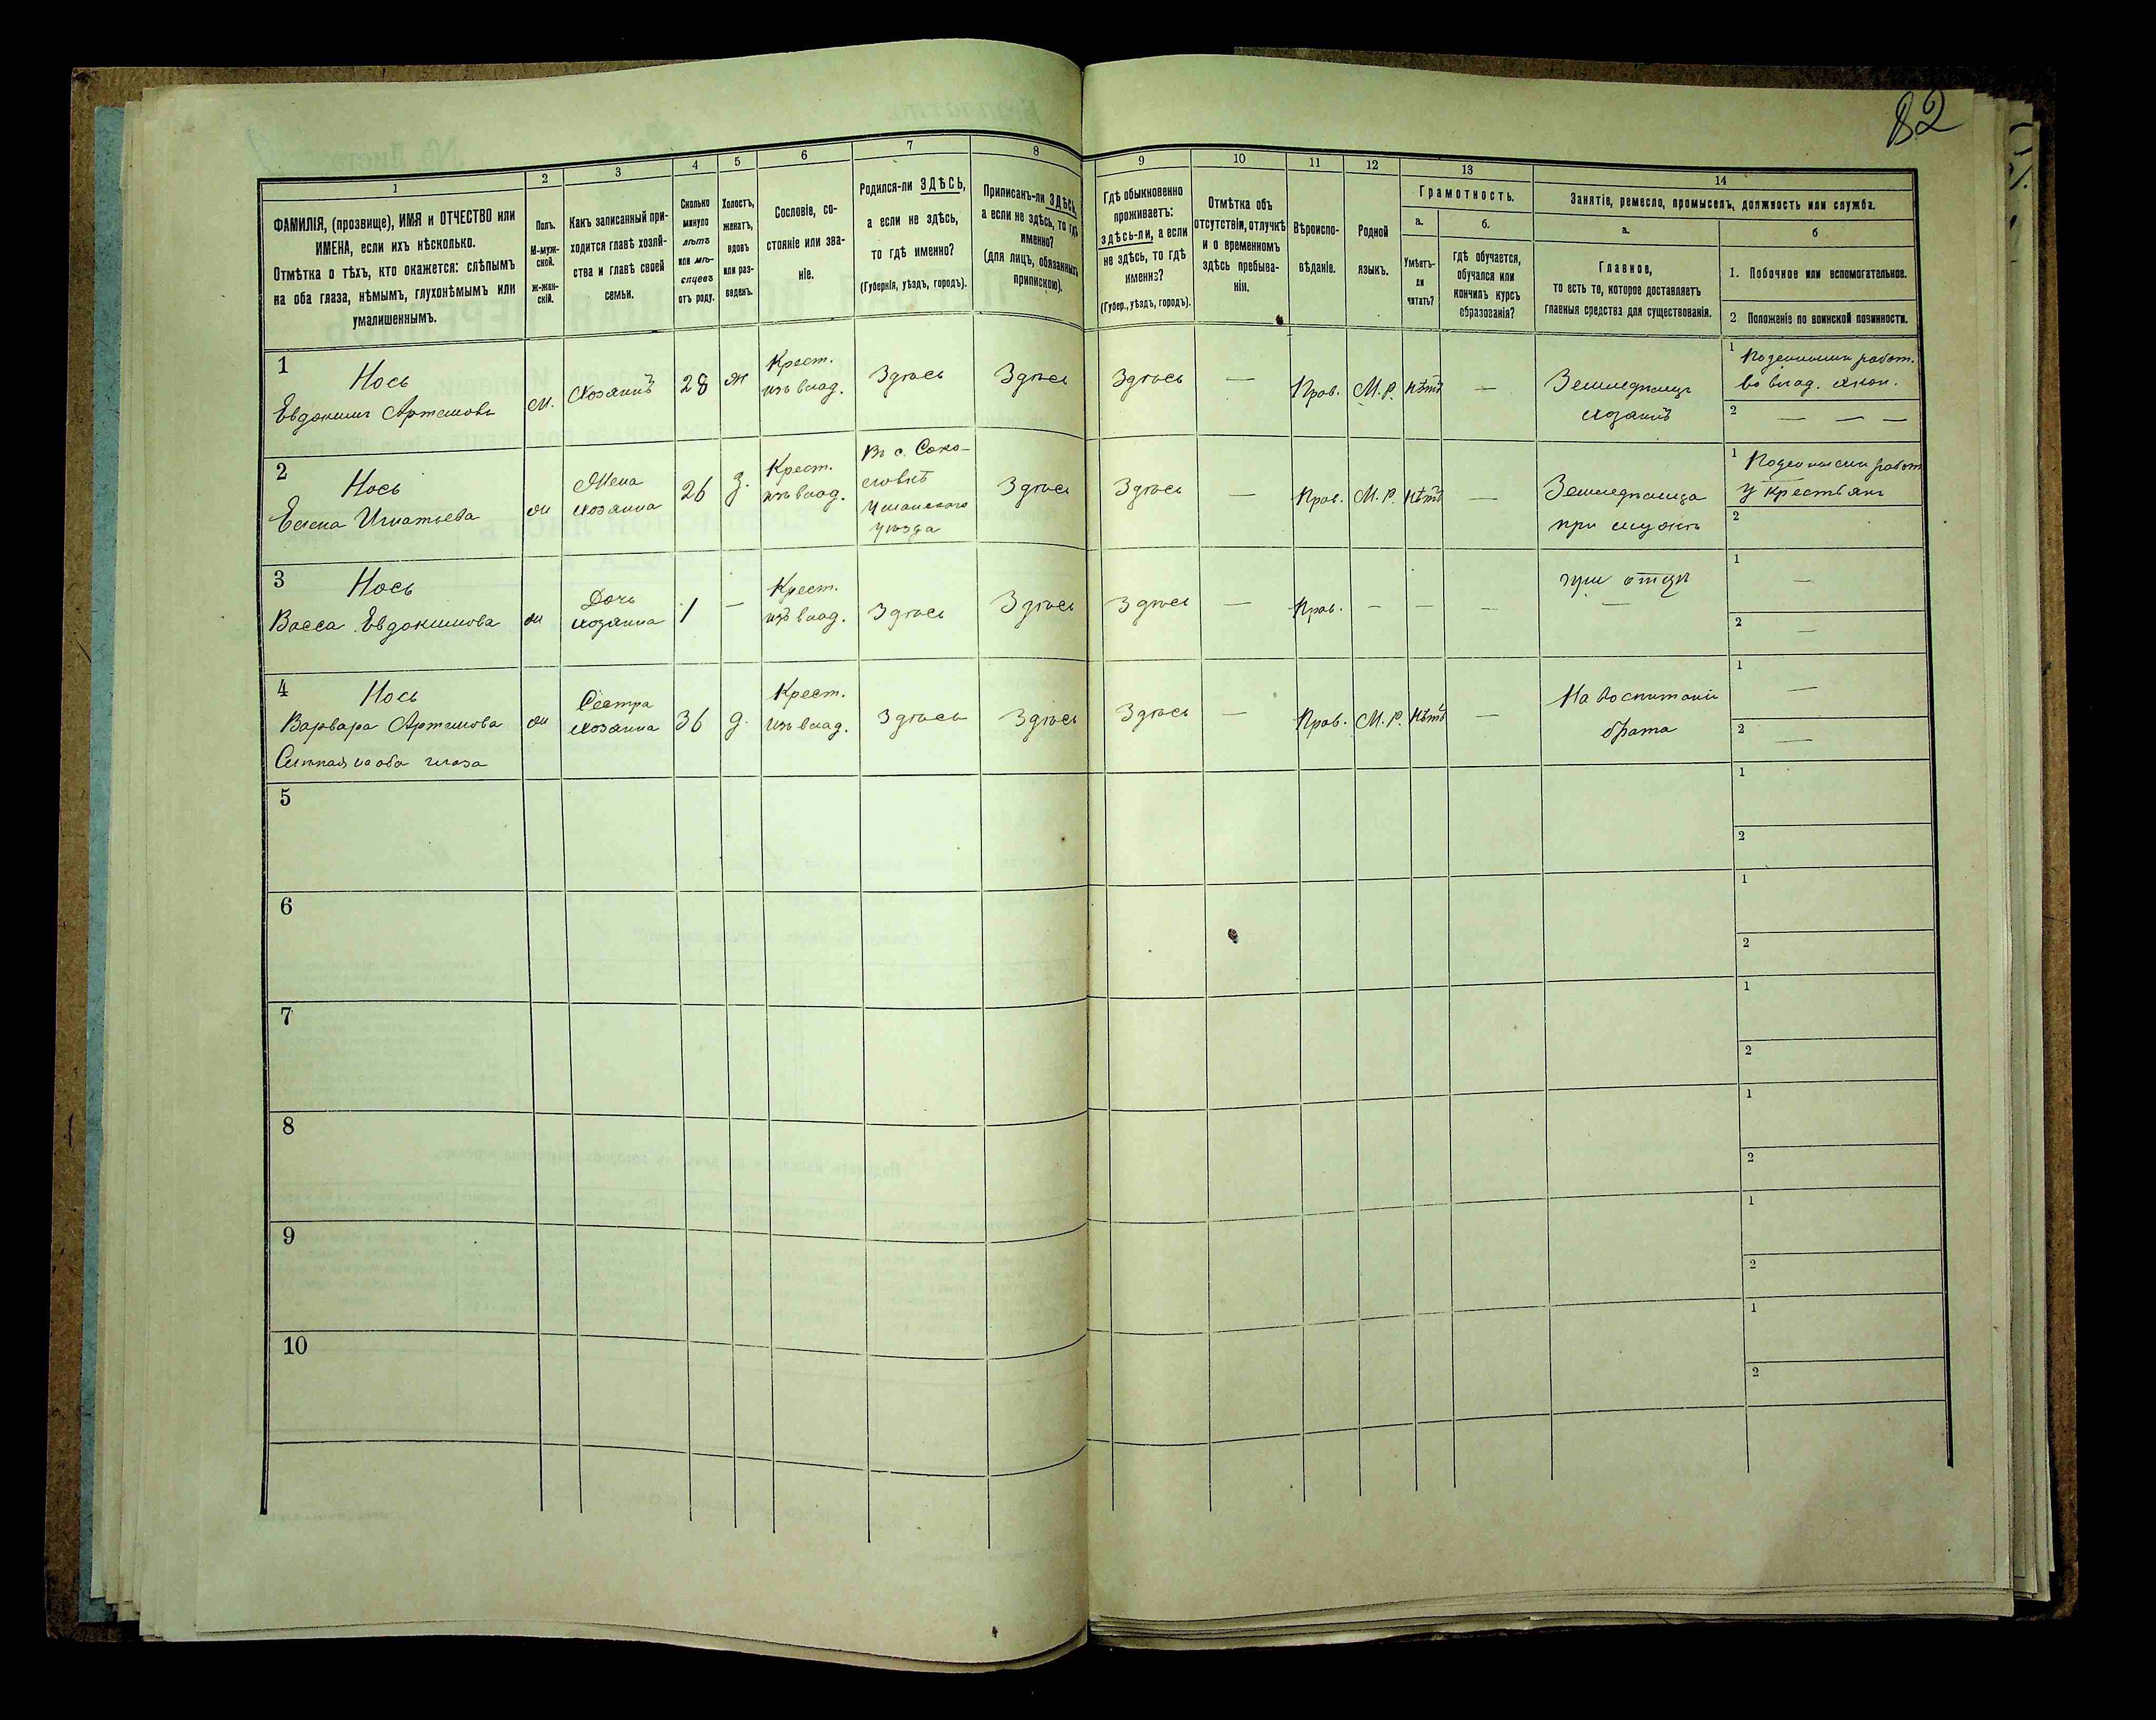 82
1
2
3
4
5
6
7
8
9
10
11
12
13
14
ФАМИЛІЯ, (прозвище), ИМЯ и ОТЧЕСТВО или
ИМЕНА, если ихъ нѣсколько.
Отмѣтка о тѣхъ, кто окажется: слѣпымъ
на оба глаза, нѣмымъ, глухонѣмымъ или
умалишеннымъ.
Полъ.
М-муж-
ской.
Ж-жен-
скій.
Какъ записанный при-
ходится главѣ хозяй-
ства и главѣ своей
семьи.
Сколько
минуло
лѣтъ
или мѣ-
сяцевъ
отъ роду.
Холостъ,
женатъ,
вдовъ
или раз-
веденъ.
Сословіе, со-
стояніе или зва-
ніе.
Родился-ли ЗДѢСЬ,
а если не здѣсь,
то гдѣ именно?
(Губернія, уѣздъ, городъ).
Приписанъ-ли ЗДѢСЬ,
а если не здѣсь, то гдѣ
именно?
(для лицъ, обязанныхъ
припискою).
Гдѣ обыкновенно
проживаетъ:
здѣсь-ли, а если
не здѣсь, то гдѣ
именно?
(Губер., уѣздъ, городъ).
Отмѣтка объ
отсутствіи, отлучкѣ
и о временномъ
здѣсь пребыва-
ніи.
Вѣроиспо-
вѣданіе.
Родной
языкъ.
Грамотность.
а.
Умѣетъ-
ли
читать?
б.
гдѣ обучается,
обучался или
кончилъ курсъ
образованія?
Занятіе, ремесло, промыселъ, должность или служба.
а.
Главное,
то есть то, которое доставляетъ
главныя средства для существованія.
б
1. Побочное или вспомогательное.
2 Положеніе по воинской повинности.
1
Нось
Евдокимъ Артемовъ
м.
Хозяинъ
28
ж
Крест.
изъ влад.
Здѣсь
Здѣсь
Здѣсь
—
Прав.
М. Р.
нѣтъ
—
Земледѣлецъ
хозяинъ
1 Поденныхъ работ.
во влад. экон.
2 — — —
2
Нось
Елена Игнатьева
ж
Жена
хозяина
26
з.
Крест.
изъ влад.
Въ с. Соко-
ловкѣ
Уманскаго
уѣзда
Здѣсь
Здѣсь
—
Прав.
М. Р.
нѣтъ
—
Земледѣлица
при мужѣ
1 работ
у крестьянъ
2
3
Нось
Васса Евдокимова
ж
Дочь
хозяина
1
—
Крест.
изъ влад.
Здѣсь
Здѣсь
Здѣсь
—
Прав.
—
—
—
при отцѣ
—
1 —
2 —
4
Нось
Варвара Артемова
Слѣпая на оба глаза
ж
Сестра
хозяина
36
д.
Крест.
изъ влад.
Здѣсь
Здѣсь
Здѣсь
—
Прав.
М. Р.
нѣтъ
—
На воспитаніи
брата
1 —
2 —
5
1
2
6
1
2
7
1
2
8
1
2
9
1
2
10
1
2